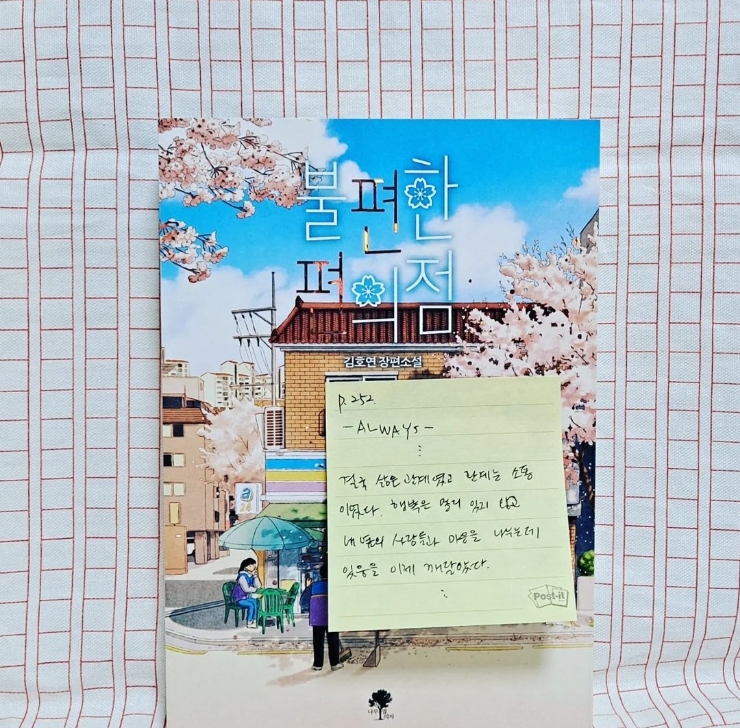 불편한
편의점
김호연 장편소설
p.252.
-ALWAYS-
⋮
결국 삶은 관계였고 관계는 소통
이었다. 행복은 멀리 있지 않고
내 옆의 사람들과 마음을 나누는데
있음을 이제 깨달았다.
:
Post-it
a
24
나무옆의자